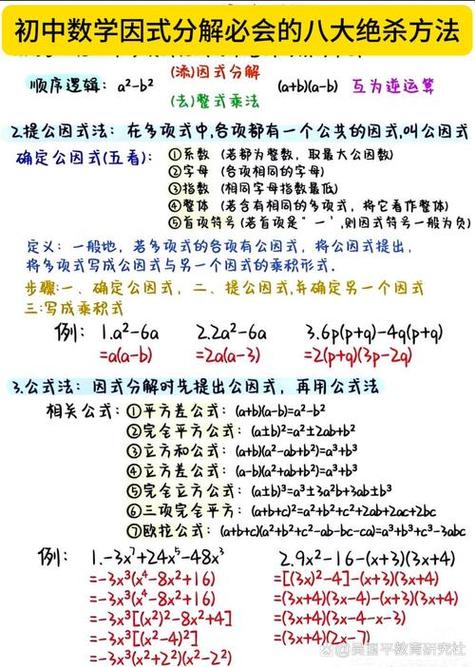 初中数学因式分解必会的八大绝杀方法
(添)因式分解
顺序逻辑: a²-b² (a+b)(a-b) 互为逆运算
(去)整式乘法
2.提公因式法: 在多项式中,各项都有一个公共的因式,叫公因式
确定公因式(五看): ①系数 (若都为整数, 取最大公因数)
②字母 (各项相同的字母)
③指数 (相同字母指数最低)
④整体 (若含有相同的多项式, 将它看作整体)
⑤首项符号 (若首项是"-",则因式符号一般为负)
定义: 一般地, 若多项式的各项有公因式, 将公因式提出,
将多项式写成公因式与另一个因式的乘积形式.
步骤:一、确定公因式, 二、提公因式,并确定另一个因式
三:写成乘积式
例: 1.a²-6a 2.2a²-6a 3.6p(p+q)-4q(p+q)
=a(a-6) =2a(a-3) =2(p+q)(3p-2q)
3.公式法: 因式分解时先提出公因式, 再用公式法
相关公式: ①平方差公式: (a+b)(a-b)=a²-b²
②完全平方公式: (a±b)²=a²±2ab+b²
③立方和公式: (a+b)(a²-ab+b²)=a³+b³
④立方差公式: (a-b)(a²+ab+b²)=a³-b³
⑤完全立方公式: (a±b)³=a³±3a²b+3ab±b³
⑥三项完全平方: (a+b+c)²=a²+b²+c²+2ab+2ac+2bc
⑦欧拉公式: (a+b+c)(a²+b²+c²-ab-bc-ca)=a³+b³+c³-3abc
例: 1.-3x⁷+24x⁵-48x³ 2.9x²-16-(x+3)(3x+4)
=-3x³(x⁴-8x²+16) =[(3x)²-4]-(x+3)(3x+4)
=-3x³(x⁴-8x²+16) =(3x+4)(3x-4)-(x+3)(3x+4)
=-3x³[(x²)²-8x²+4] =(3x+4)(3x-4-x-3)
=-3x³[(x²-4)²] =(3x+4)(2x-7)
=-3x³(x²+2²)(x²-2²)